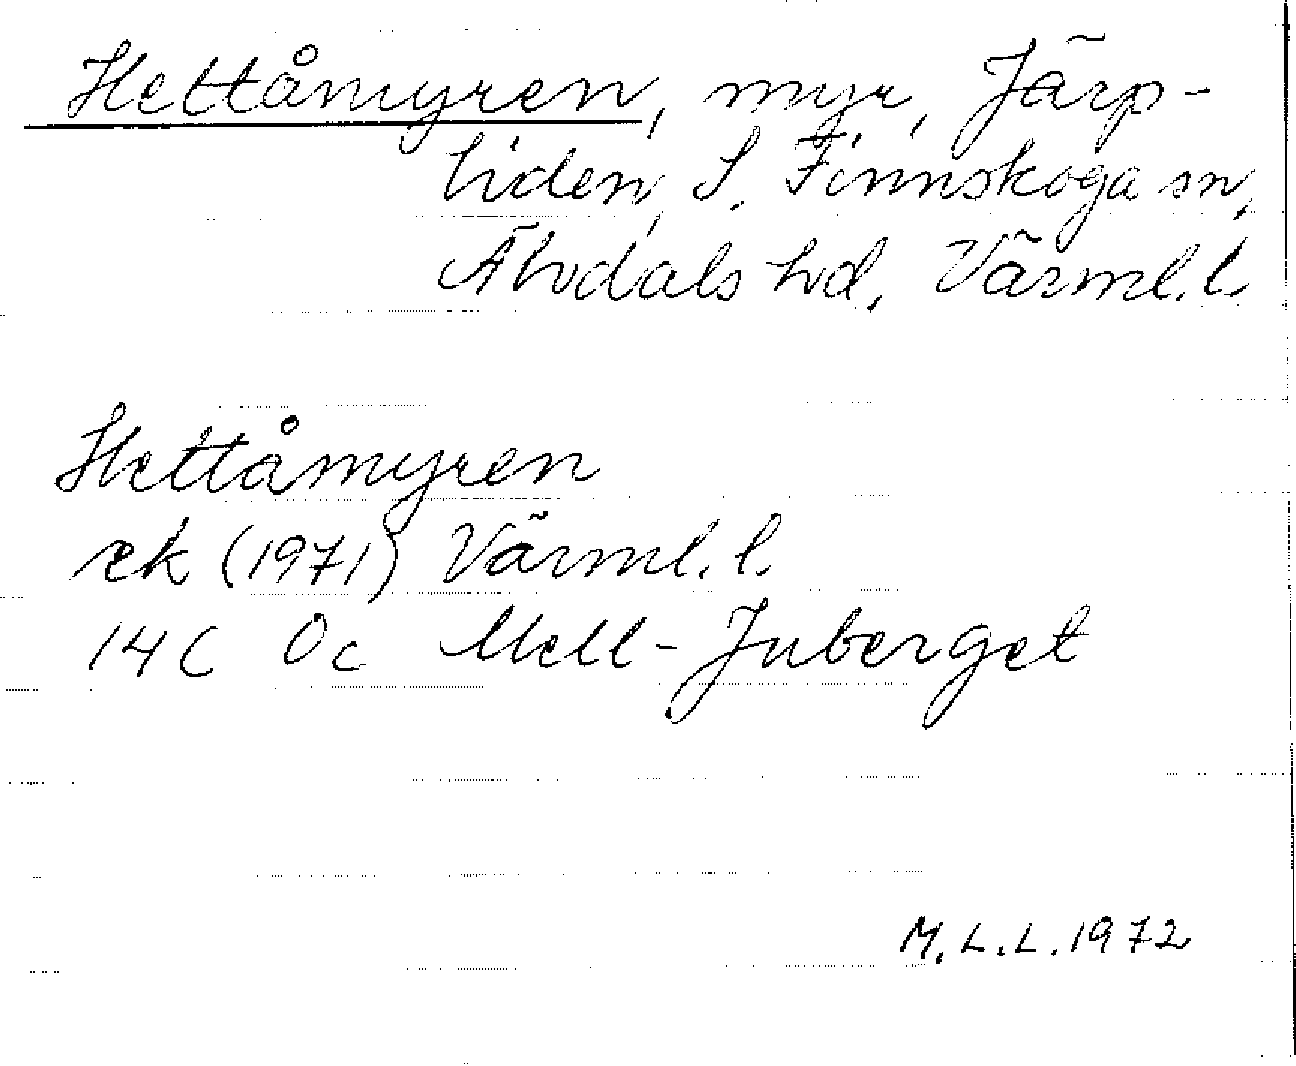 Hettåmyren, myr, Järp-
liden, S. Finnskoga sn,
Älvdals hd, Värml.l.
Hettåmyren
ek (1971) Värml.l.
14C Oc Mell-Juberget
M.L.L. 1972